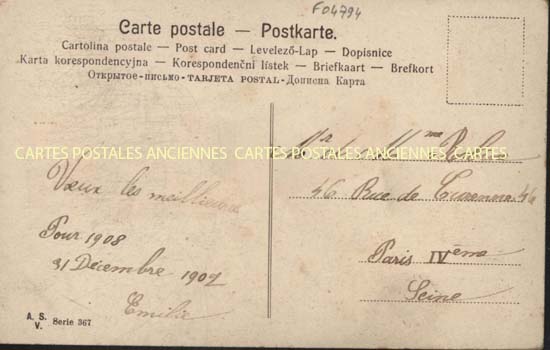 F04794
Carte postale — Postkarte.
Cartolina postale — Post card — Levelező-Lap — Dopisnice
Karta korespondencyjna — Korespondenční lístek — Briefkaart — Brefkort
Открытое-письмо-TARJETA POSTAL-Дописна Карта
CARTES POSTALES ANCIENNES CARTES POSTALES ANCIENNES CARTES POSTALES ANCIENNES
Mr et Mme
46 Rue de Turenne 46
Paris IVème
Seine
Vœux les meilleurs
Pour 1908
31 Décembre 1907
Emilie
A. S. V. Serie 367